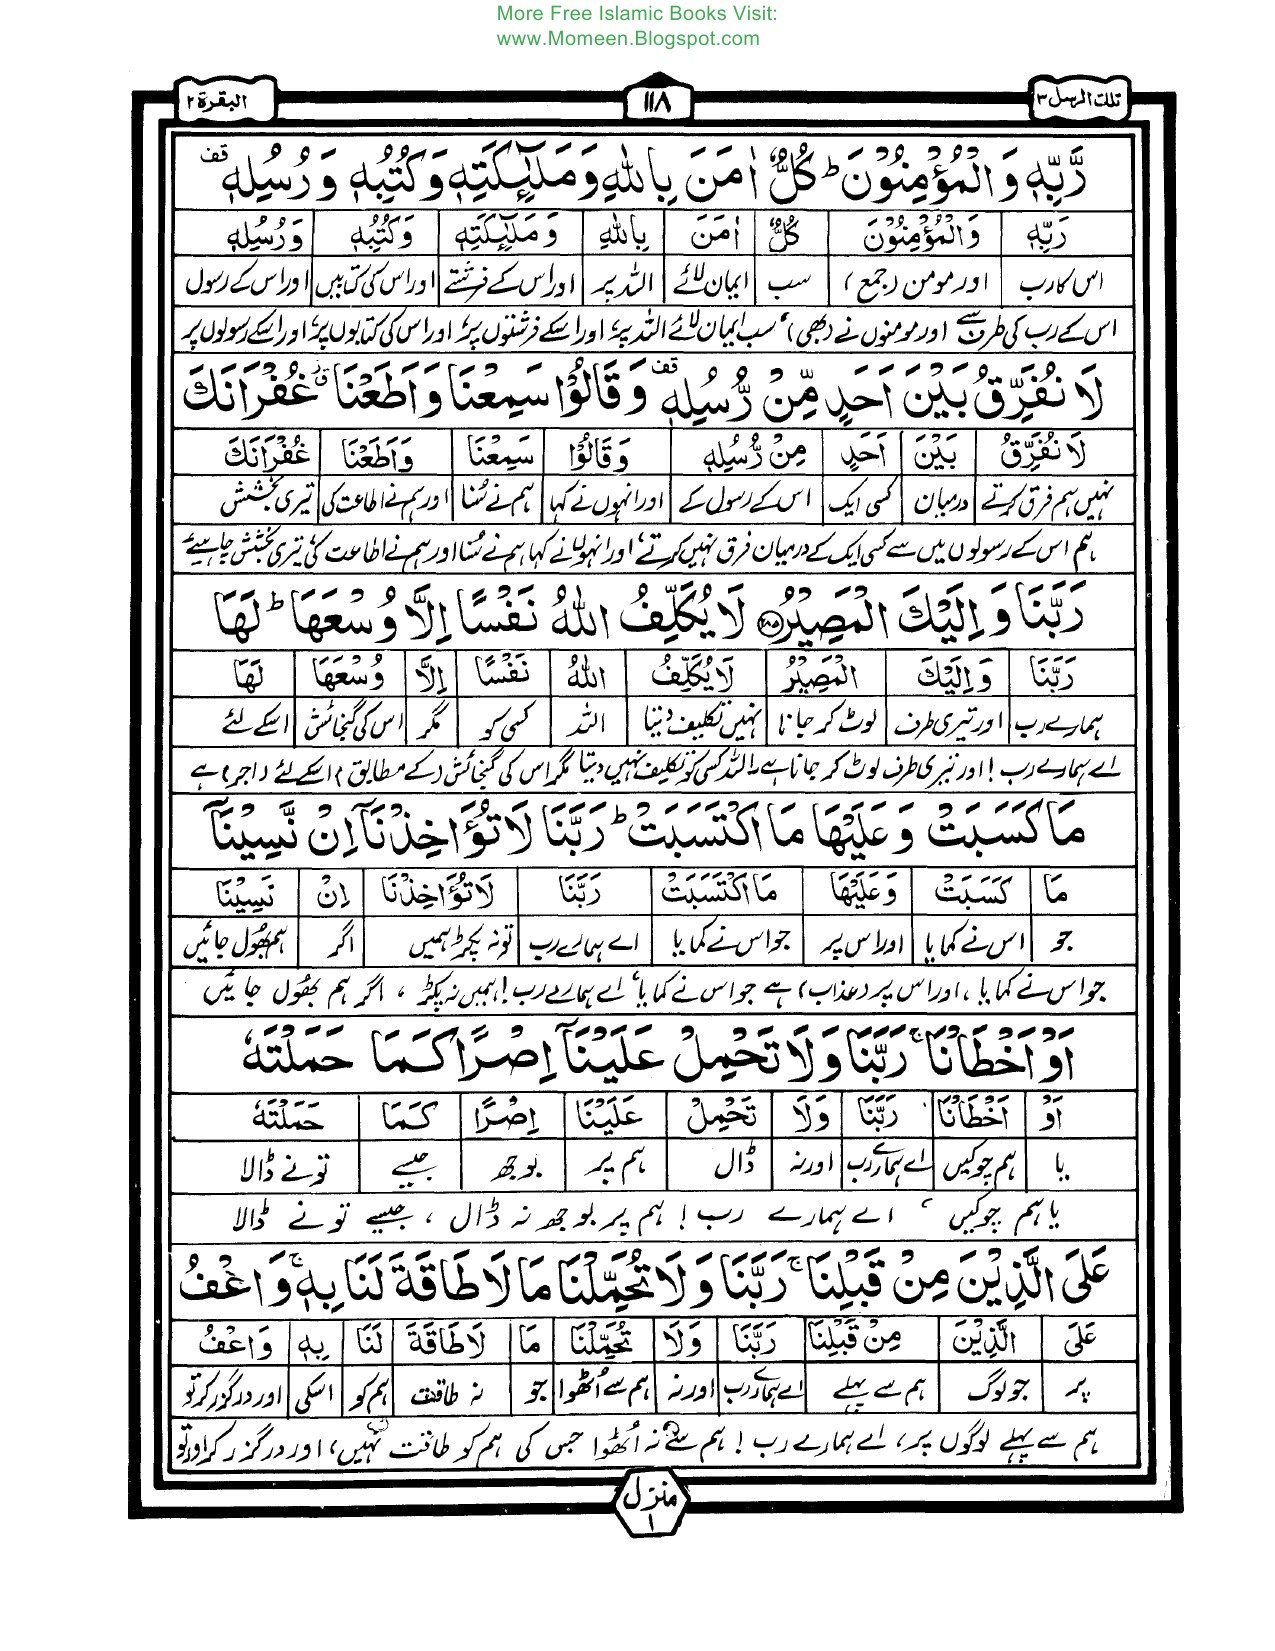 More Free Islamic Books Visit:
www.Momeen.Blogspot.com
تلك الرسل ٣ ١١٨ البقرة ٢
رَّبِّهٖ وَالْمُؤْمِنُوْنَ ؕ كُلٌّ اٰمَنَ بِاللّٰهِ وَمَلٰٓئِكَتِهٖ وَكُتُبِهٖ وَرُسُلِهٖ ۫قف
رَبِّهٖ وَالْمُؤْمِنُوْنَ كُلٌّ اٰمَنَ بِاللّٰهِ وَمَلٰٓئِكَتِهٖ وَكُتُبِهٖ وَرُسُلِهٖ
اس کا رب اور مومن (جمع) سب ایمان لائے اللہ پر اور اس کے فرشتے اور اس کی کتابیں اور اس کے رسول
اس کے رب کی طرف سے اور مومنوں نے (بھی)، سب ایمان لائے اللہ پر، اور اسکے فرشتوں پر، اور اس کی کتابوں پر، اور اسکے رسولوں پر
لَا نُفَرِّقُ بَيْنَ اَحَدٍ مِّنْ رُّسُلِهٖ ۫قف وَقَالُوْا سَمِعْنَا وَاَطَعْنَا ۫ غُفْرَانَكَ
لَا نُفَرِّقُ بَيْنَ اَحَدٍ مِنْ رُّسُلِهٖ وَقَالُوْا سَمِعْنَا وَاَطَعْنَا غُفْرَانَكَ
نہیں ہم فرق کرتے درمیان کسی ایک اس کے رسول کے اور انہوں نے کہا ہم نے سنا اور ہم نے اطاعت کی تیری بخشش
ہم اس کے رسولوں میں سے کسی ایک کے درمیان فرق نہیں کرتے، اور انہوں نے کہا ہم نے سنا اور ہم نے اطاعت کی، تیری بخشش چاہیے
رَبَّنَا وَاِلَيْكَ الْمَصِيْرُ ۝۲۸۵ لَا يُكَلِّفُ اللّٰهُ نَفْسًا اِلَّا وُسْعَهَا ؕ لَهَا
رَبَّنَا وَاِلَيْكَ الْمَصِيْرُ لَا يُكَلِّفُ اللّٰهُ نَفْسًا اِلَّا وُسْعَهَا لَهَا
ہمارے رب اور تیری طرف لوٹ کر جانا نہیں تکلیف دیتا اللہ کسی کو مگر اس کی گنجائش اسکے لئے
اے ہمارے رب! اور تیری طرف لوٹ کر جانا ہے۔ اللہ کسی کو تکلیف نہیں دیتا مگر اس کی گنجائش (کے مطابق) اسکے لئے (اجر) ہے
مَا كَسَبَتْ وَعَلَيْهَا مَا اكْتَسَبَتْ ؕ رَبَّنَا لَا تُؤَاخِذْنَآ اِنْ نَّسِيْنَآ
مَا كَسَبَتْ وَعَلَيْهَا مَا اكْتَسَبَتْ رَبَّنَا لَا تُؤَاخِذْنَا اِنْ نَسِيْنَا
جو اس نے کمایا اور اس پر جو اس نے کمایا اے ہمارے رب تو نہ پکڑ ہمیں اگر ہم بھول جائیں
جو اس نے کمایا، اور اس پر (عذاب) ہے جو اس نے کمایا، اے ہمارے رب! ہمیں نہ پکڑ، اگر ہم بھول جائیں
اَوْ اَخْطَاْنَا ۚ رَبَّنَا وَلَا تَحْمِلْ عَلَيْنَآ اِصْرًا كَمَا حَمَلْتَهٗ
اَوْ اَخْطَاْنَا رَبَّنَا وَلَا تَحْمِلْ عَلَيْنَا اِصْرًا كَمَا حَمَلْتَهٗ
یا ہم چوکیں اے ہمارے رب اور نہ ڈال ہم پر بوجھ جیسے تو نے ڈالا
یا ہم چوکیں، اے ہمارے رب! ہم پر بوجھ نہ ڈال، جیسے تو نے ڈالا
عَلَى الَّذِيْنَ مِنْ قَبْلِنَا ۚ رَبَّنَا وَلَا تُحَمِّلْنَا مَا لَا طَاقَةَ لَنَا بِهٖ ۚ وَاعْفُ
عَلَى الَّذِيْنَ مِنْ قَبْلِنَا رَبَّنَا وَلَا تُحَمِّلْنَا مَا لَا طَاقَةَ لَنَا بِهٖ وَاعْفُ
پر جو لوگ ہم سے پہلے اے ہمارے رب اور نہ ہم سے اٹھوا جو نہ طاقت ہم کو اسکی اور درگزر کر تو
ہم سے پہلے لوگوں پر، اے ہمارے رب! ہم سے نہ اٹھوا جس کی ہم کو طاقت نہیں، اور درگزر کر تو
منزل ١